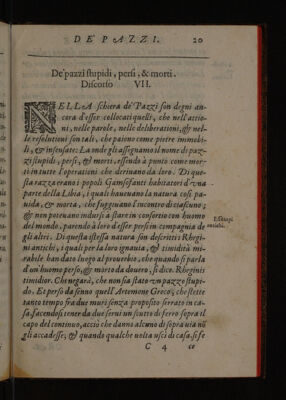 DE' PAZZI. 20
De' pazzi stupidi, persi, & morti.
Discorso VII.
NELLA schiera de' Pazzi son degni an-
cora d'esser collocati quelli, che nell'attio-
ni, nelle parole, nelle deliberationi, & nel-
le resolutioni son tali, che paiono come pietre immobi-
li, & insensate: La onde gli assegniamo il nome di paz-
zi stupidi, persi, & morti, essendo à punto come mor-
ti in tutte l'operationi che derivano da loro. Di que-
sta razza erano i popoli Gamfasanti habitatori d'una
parte della Libia, i quali haueuano la natura così pa-
uida, & morta, che fuggiuano l'incontro di ciascuno;
& non poteuano indursi à stare in consortio con huomo
del mondo, parendo à loro d'esser persi in compagnia de
gli altri. Di questa istessa natura son descritti i Rhegi-
ni antichi, i quali per la loro ignauia, & timidità mi-
rabile han dato luogo al prouerbio, che quando si parla
d'un huomo perso, & morto da douero, si dice. Rheginis
timidior. Chi negarà, che non sia stato un pazzo stupi-
do, & perso da senno quell' Artemone Greco, che stette
tanto tempo fra due muri senza proposito serrato in ca-
sa, facendosi tener da due serui un scutto di ferro sopra il
capo del continuo, acciò che danno alcuno di sopra uia nō
gli accadesse; & quando qualche uolta uscì di casa, si fe
C 4 ce